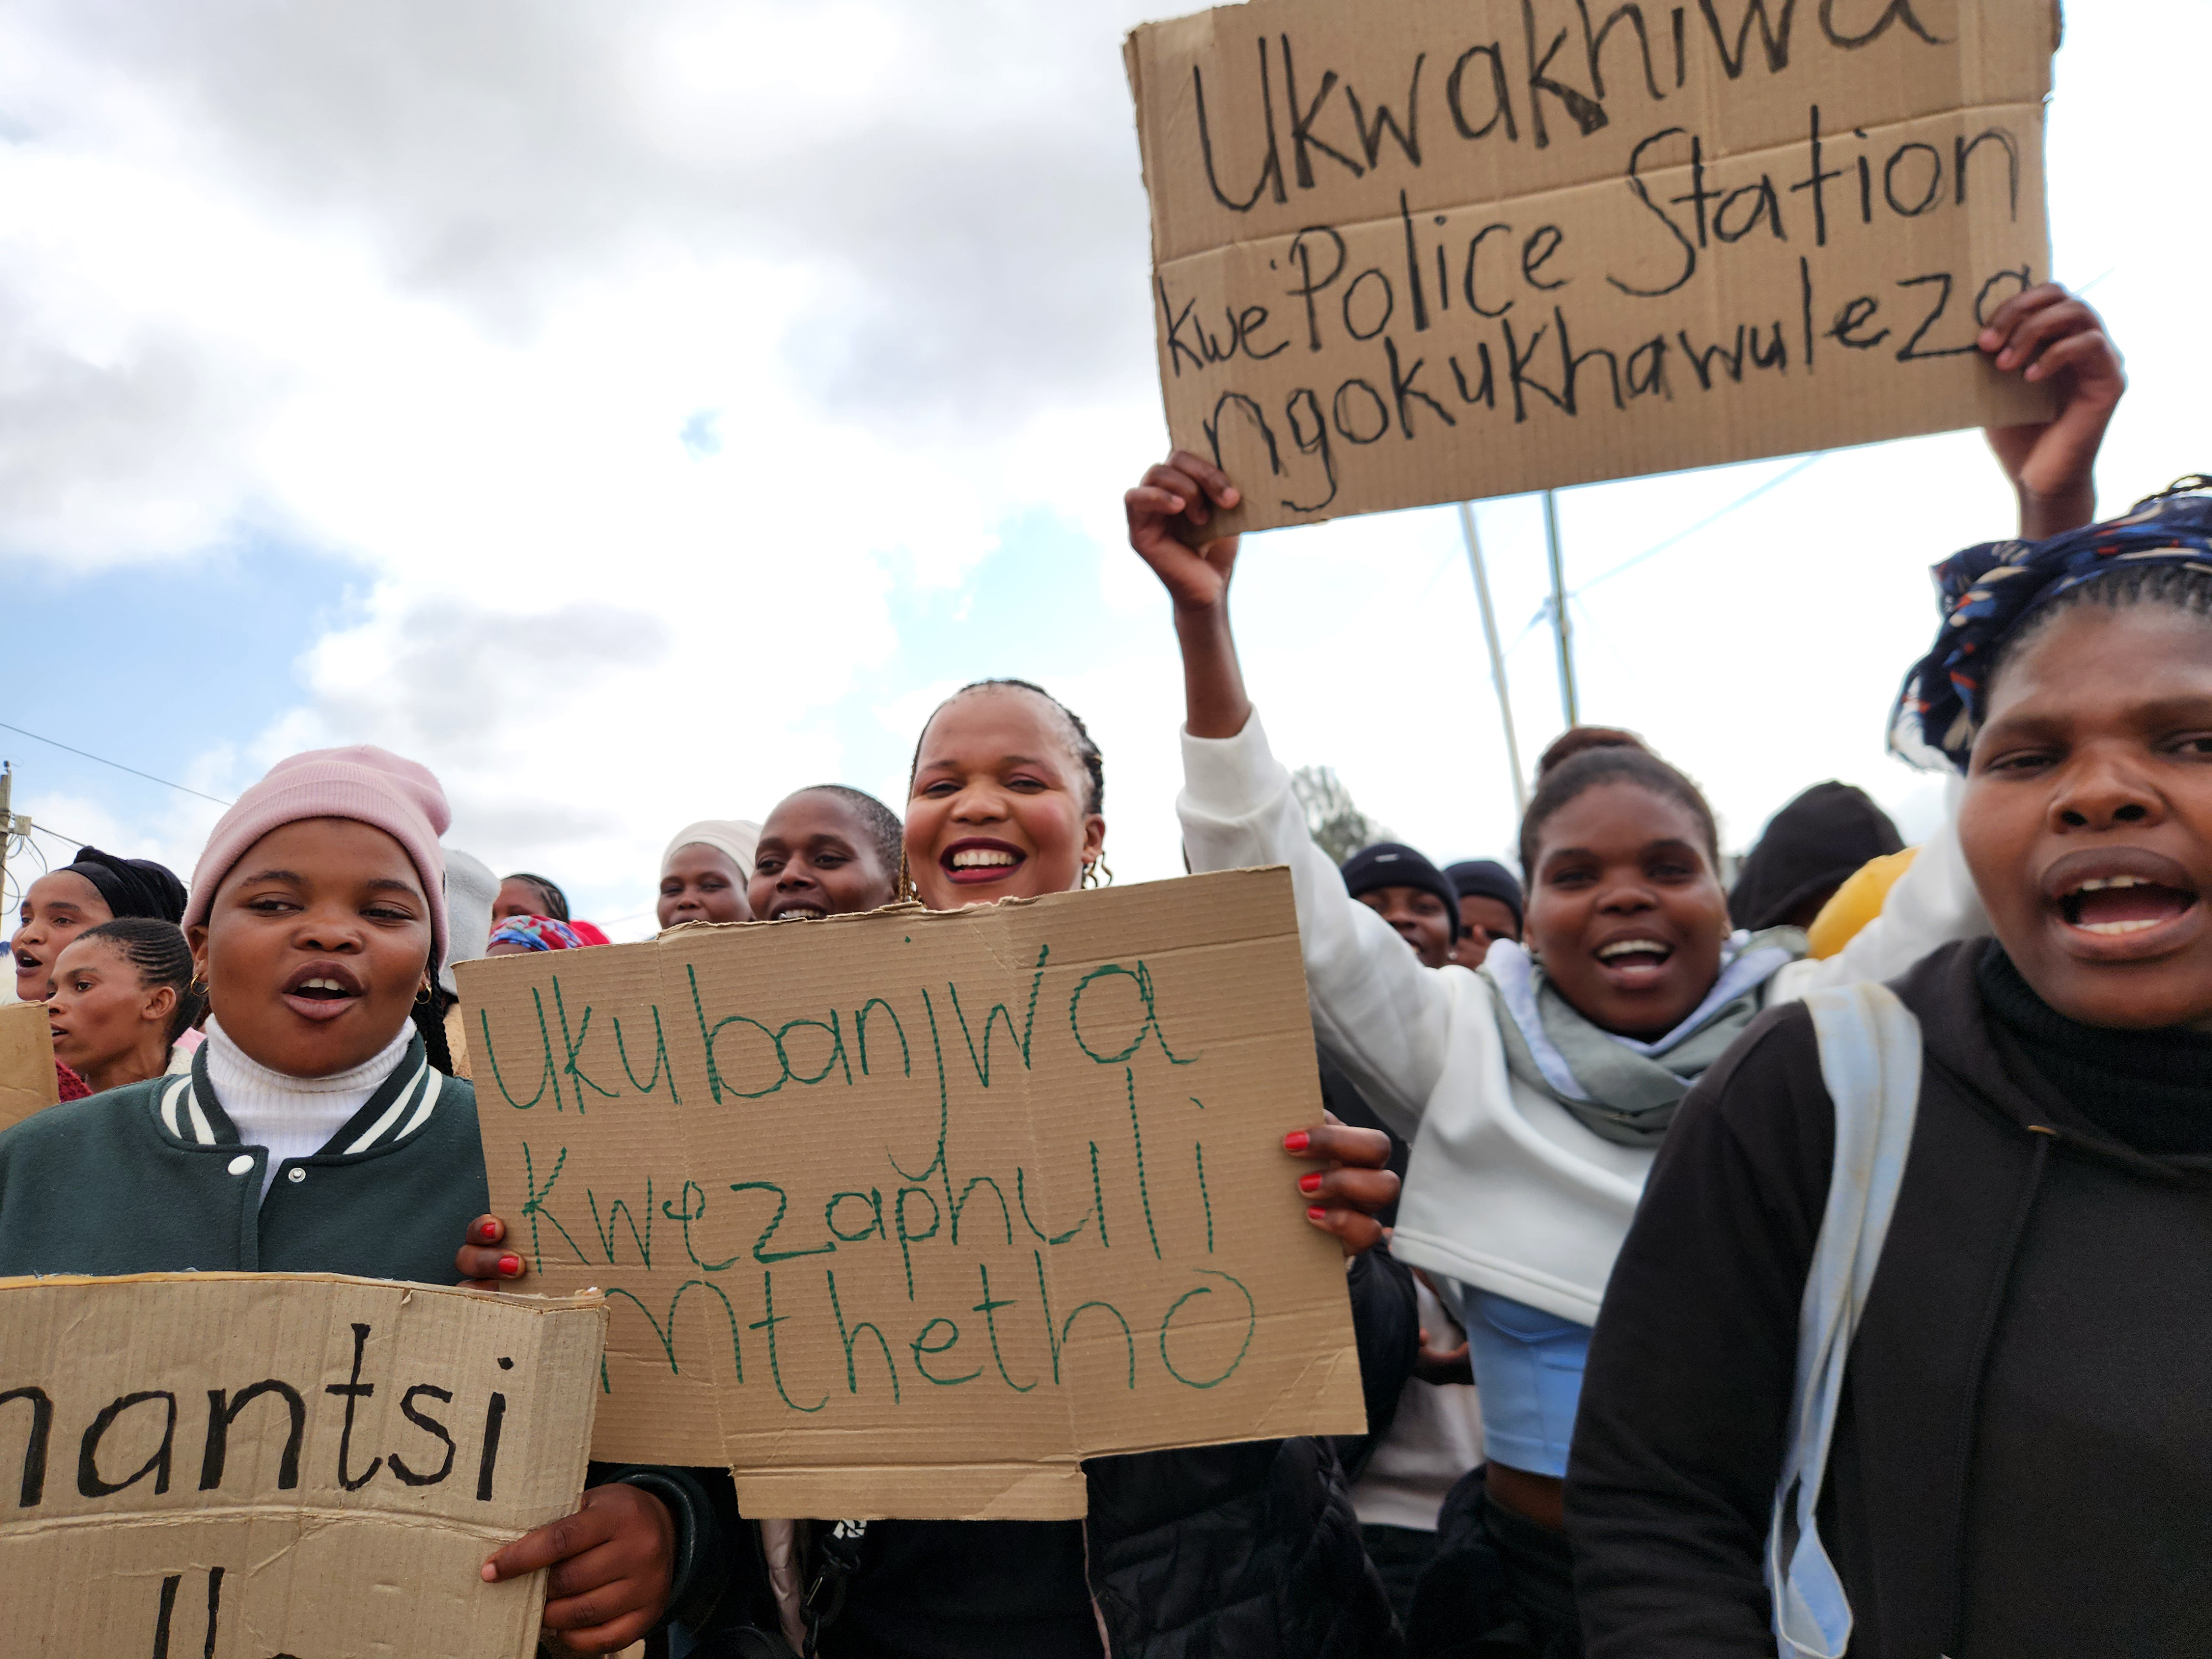 Ukwakhiwa
kwe Police Station
ngokukhawuleza
Ukubanjwa
kwezaphuli
mthetho
nantsi